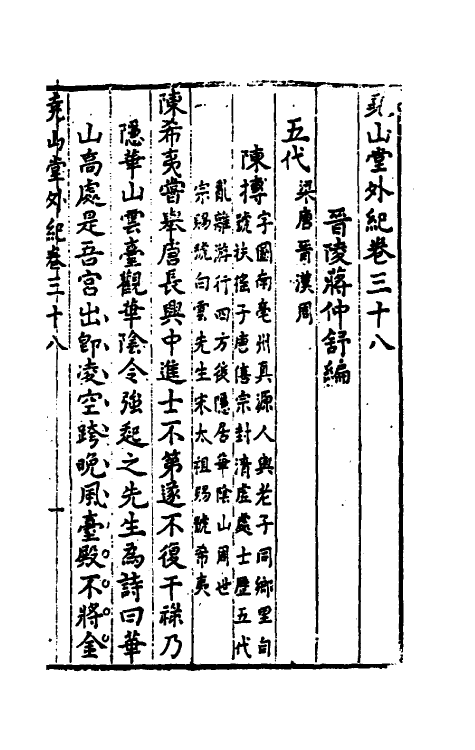 堯山堂外紀卷三十八
晉陵蔣仲舒編
五代 梁唐晉漢周
陳摶 字圖南亳州真源人與老子同鄉里自
號扶徭子唐僖宗封清虛處士歷五代
亂離游行四方後隱居華陰山周世
宗賜號白雲先生宋太祖賜號希夷
陳希夷嘗舉唐長興中進士不第遂不復干祿乃
隱華山雲臺觀華陰令強起之先生為詩曰華
山高處是吾宮出即凌空跨曉風臺殿不將金
堯山堂外紀卷三十八 一